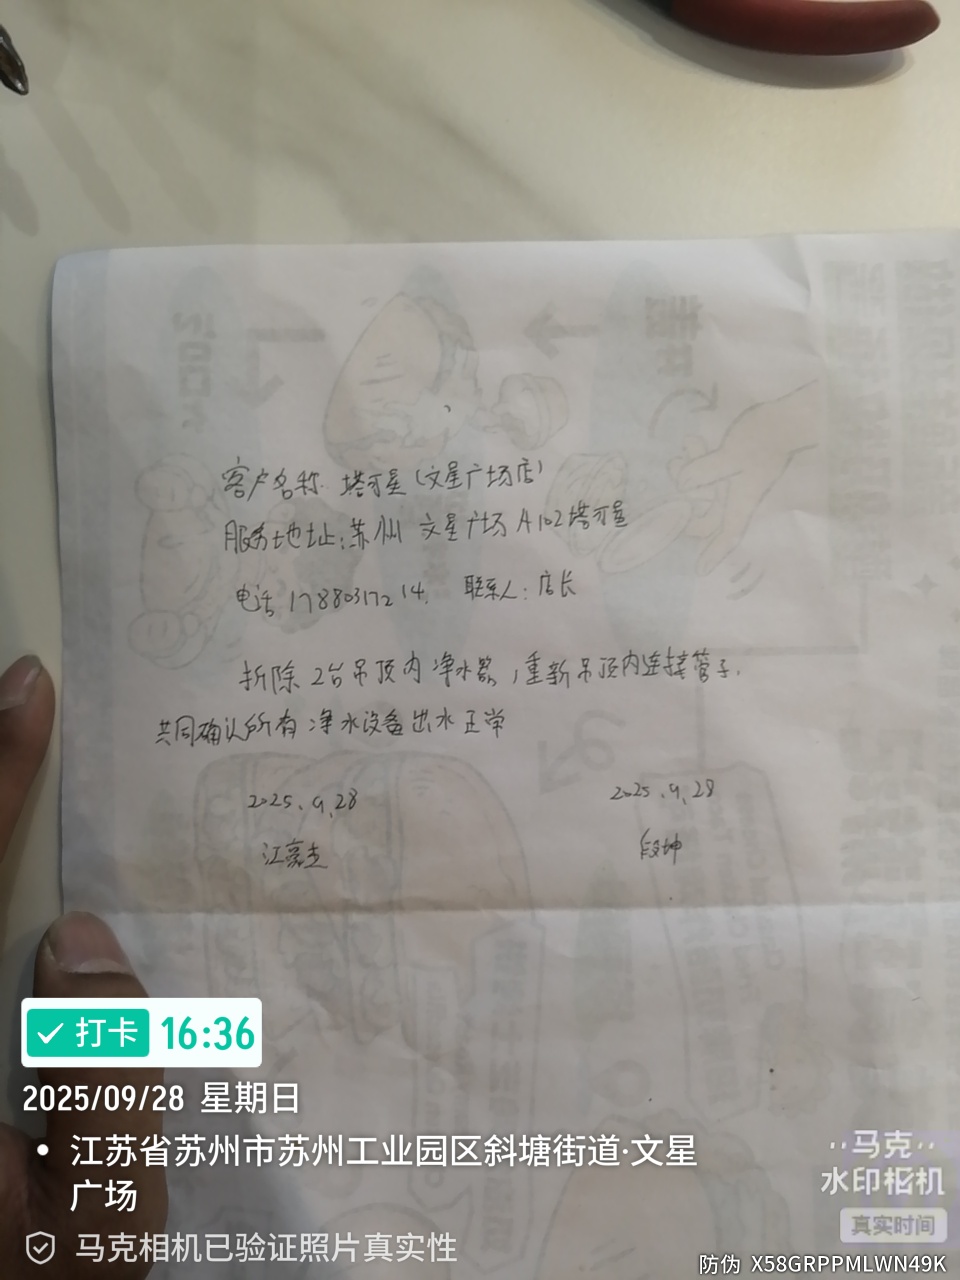 客户名称: 塔可星(文星广场店)
服务地址:苏州 文星广场A102塔可星
电话 17880317214. 联系人:店长
拆除 2台吊顶内净水器,重新吊顶内连接管子.
共同确认所有净水设备出水正常
2025.9.28
2025.9.28
江豪杰
段坤
打卡 16:36
2025/09/28 星期日
江苏省苏州市苏州工业园区斜塘街道·文星
广场
马克相机已验证照片真实性
马克
水印相机
真实时间
防伪 X58GRPPMLWN49K